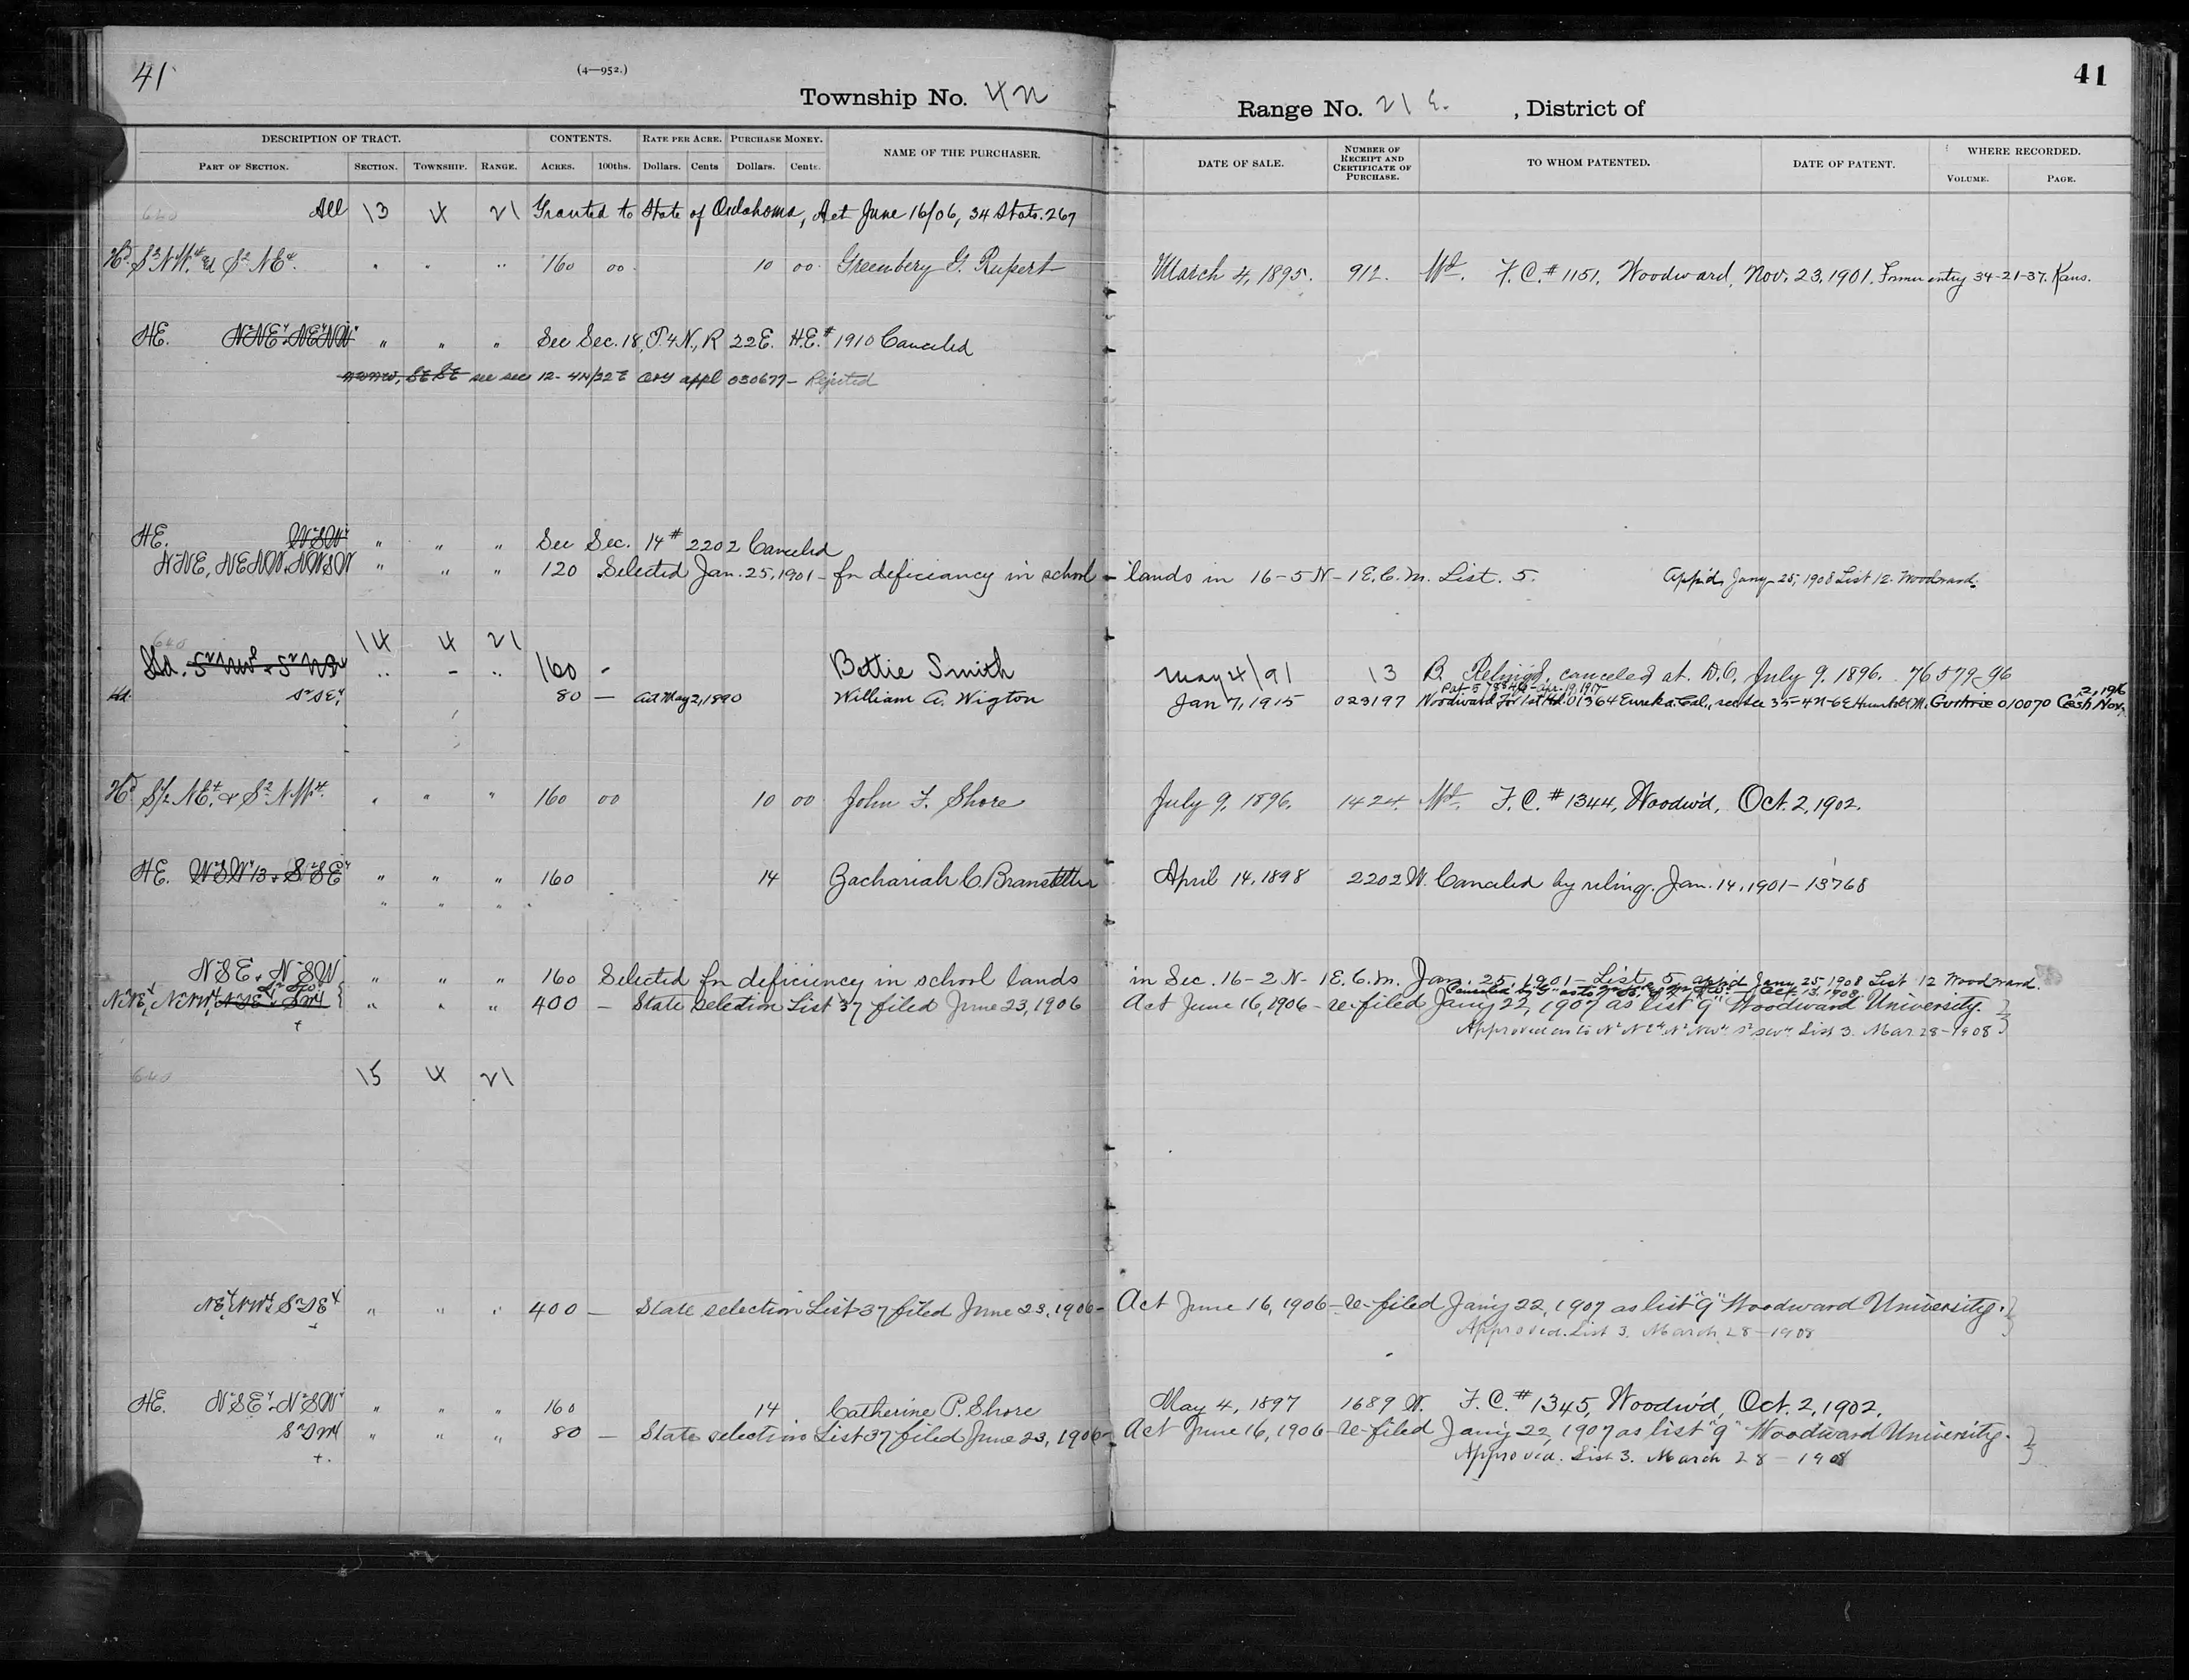 41
(4—952.)
Township No. 4 N
Range No. 21 E. , District of
41
DESCRIPTION OF TRACT. CONTENTS. RATE PER ACRE. PURCHASE MONEY. NAME OF THE PURCHASER. DATE OF SALE. NUMBER OF RECEIPT AND CERTIFICATE OF PURCHASE. TO WHOM PATENTED. DATE OF PATENT. WHERE RECORDED.
PART OF SECTION. SECTION. TOWNSHIP. RANGE. ACRES. 100ths. Dollars. Cents Dollars. Cents. VOLUME. PAGE.
640 All 13 4 21 Granted to State of Oklahoma, Act June 16/06, 34 Stats. 267
Hd. S2 NW4 & S2 NE4 " " " 160 00 10 00 Greenbery G. Rupert March 4, 1895. 912. Wd. F.C. # 1151, Woodward, Nov. 23, 1901. Former entry 34-21-37. Kans.
HE. N2NE4 NE4NW4 " " " See Sec. 18, T. 4 N., R 22 E. H.E. # 1910 Canceled
see sec 12- 4N/22E appl 030677 - Rejected
HE. W2SW4 " " " See Sec. 14 # 2202 Canceled
N2NE, NENW, NWSW " " " 120 Selected Jan. 25, 1901 - for deficiency in school - lands in 16-5N-1E.C.M. List. 5. App'd, Jany-25, 1908 List 12. Woodward.
640 14 4 21
Hd. S2NW4 & S2NE4 " - " 160 - Bettie Smith May 4/91 13 B. Relinq'd, canceled at D.O. July 9, 1896. 76579-96
Hd. S2SE4 80 — Act May 2, 1890 William A. Wigton Jan 7, 1915 023197 Woodward For 1st Hd. 01364 Eureka, Cal., see sec 35-4N-6E Humb'lt M. Guthrie 010070 Cash Nov. 2, 1916
Pat-578346-Apr. 19, 1917
Hd S/2 NE4 & S2 NW4 " " " 160 00 10 00 John F. Shore July 9, 1896. 1424. Wd. F.C. # 1344, Woodw'd, Oct. 2, 1902.
HE. W2SW4 13 & S2SE4 " " " 160 14 Zachariah C. Branstetter April 14, 1898 2202 W. Canceled by relinq. Jan. 14, 1901 - 13768
" " " "
N2SE & N2SW " " " 160 Selected for deficiency in school lands in Sec. 16-2N-1E.C.M. Jan. 25, 1901 - List 5 App'd Jany 25, 1908 List 12 Woodward.
N2NE4, N2NW4, S2SE4 S2SW4 " " " 400 — State selection List 37 filed June 23, 1906 Act June 16, 1906 - re-filed Jan'y 22, 1907 as list "9" Woodward University.
Approved as to N2NE4 N2NW4 S2SW4 List 3. Mar. 28-1908
640 15 4 21
NE4 NW4 S2SE4 " " " 400 — State selection List 37 filed June 23, 1906 - Act June 16, 1906 - re-filed Jan'y 22, 1907 as list "9" Woodward University.
Approved. List 3. March 28-1908
HE. N2SE4 N2SW4 " " " 160 14 Catherine P. Shore May 4, 1897 1689 W. F.C. # 1345, Woodw'd, Oct. 2, 1902.
S2SW4 " " " 80 — State selection List 37 filed June 23, 1906 - Act June 16, 1906 - re-filed Jan'y 22, 1907 as list "9" Woodward University.
Approved. List 3. March 28-1908